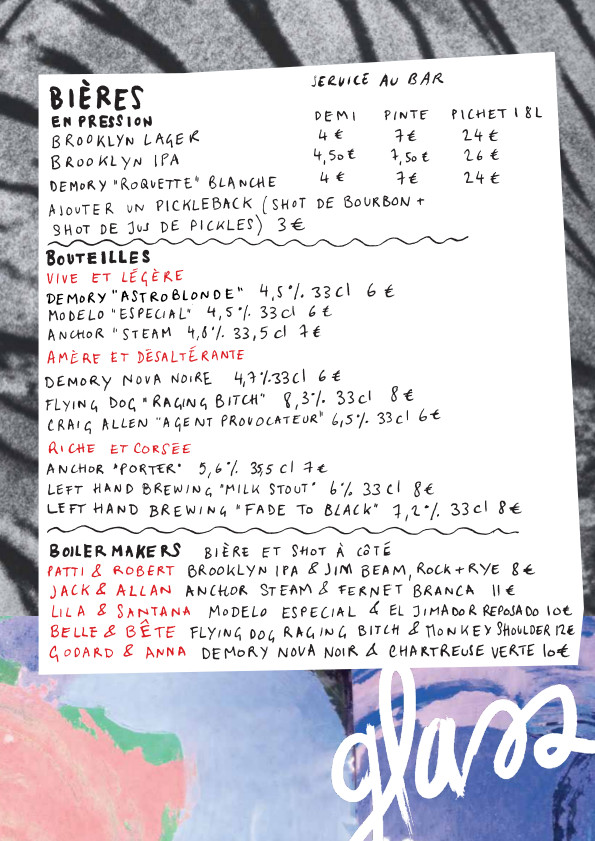 SERVICE AU BAR
BIÈRES
EN PRESSION DEMI PINTE PICHET 1 8L
BROOKLYN LAGER 4 € 7€ 24 €
BROOKLYN IPA 4,50€ 7,50€ 26 €
DEMORY "ROQUETTE" BLANCHE 4 € 7€ 24 €
AJOUTER UN PICKLEBACK (SHOT DE BOURBON +
SHOT DE JUS DE PICKLES) 3 €
BOUTEILLES
VIVE ET LÉGÈRE
DEMORY "ASTROBLONDE" 4,5°/. 33cl 6 €
MODELO "ESPECIAL" 4,5°/. 33cl 6 €
ANCHOR "STEAM 4,8°/. 33,5cl 7€
AMÈRE ET DÉSALTÉRANTE
DEMORY NOVA NOIRE 4,7°/.33cl 6€
FLYING DOG "RAGING BITCH" 8,3°/. 33cl 8€
CRAIG ALLEN "AGENT PROVOCATEUR" 6,5°/. 33cl 6€
RICHE ET CORSÉE
ANCHOR "PORTER" 5,6°/. 35,5cl 7€
LEFT HAND BREWING "MILK STOUT" 6°/. 33cl 8€
LEFT HAND BREWING "FADE TO BLACK" 7,2°/. 33cl 8€
BOILERMAKERS BIÈRE ET SHOT À CÔTÉ
PATTI & ROBERT BROOKLYN IPA & JIM BEAM, ROCK + RYE 8€
JACK & ALLAN ANCHOR STEAM & FERNET BRANCA 11€
LILA & SANTANA MODELO ESPECIAL & EL JIMADOR REPOSADO 10€
BELLE & BÊTE FLYING DOG RAGING BITCH & MONKEY SHOULDER 12€
GODARD & ANNA DEMORY NOVA NOIR & CHARTREUSE VERTE 10€
glass